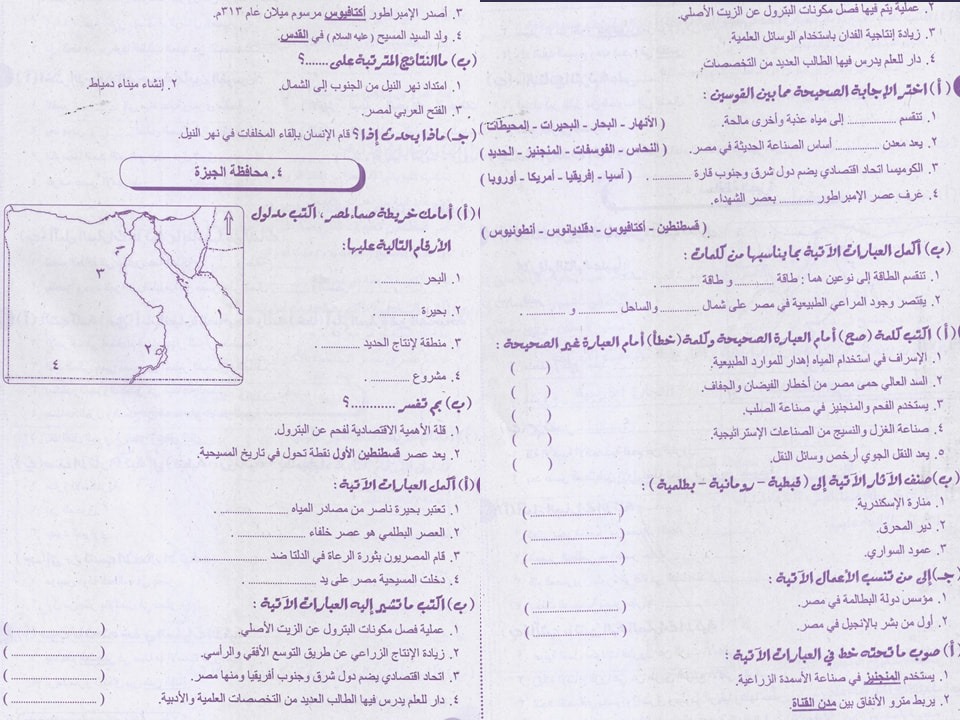 ٢. عملية يتم فيها فصل مكونات البترول عن الزيت الأصلي.
٣. زيادة إنتاجية الفدان باستخدام الوسائل العلمية.
٤. دار للعلم يدرس فيها الطالب العديد من التخصصات.
(أ) اختر الإجابة الصحيحة مما بين القوسين :
١. تنقسم .............. إلى مياه عذبة وأخرى مالحة.
( الأنهار - البحار - البحيرات - المحيطات )
٢. يعد معدن ............ أساس الصناعة الحديثة في مصر.
( النحاس - الفوسفات - المنجنيز - الحديد )
٣. الكوميسا اتحاد اقتصادي يضم دول شرق وجنوب قارة ............ .
( آسيا - إفريقيا - أمريكا - أوروبا )
٤. عُرف عصر الإمبراطور ............ بعصر الشهداء.
( قسطنطين - أكتافيوس - دقلديانوس - أنطونيوس )
(ب) أكمل العبارات الآتية بما يناسبها من كلمات :
١. تنقسم الطاقة إلى نوعين هما : طاقة ............ و طاقة ............ .
٢. يقتصر وجود المراعي الطبيعية في مصر على شمال ............ والساحل ............ و ............ .
(أ) اكتب كلمة (صح) أمام العبارة الصحيحة وكلمة (خطأ) أمام العبارة غير الصحيحة :
١. الإسراف في استخدام المياه إهدار للموارد الطبيعية. ( )
٢. السد العالي حمى مصر من أخطار الفيضان والجفاف. ( )
٣. يستخدم الفحم والمنجنيز في صناعة الصلب. ( )
٤. صناعة الغزل والنسيج من الصناعات الإستراتيجية. ( )
٥. يعد النقل الجوي أرخص وسائل النقل. ( )
(ب) صنف الآثار الآتية إلى ( قبطية - رومانية - بطلمية ) :
١. منارة الإسكندرية. (......................)
٢. دير المحرق. (......................)
٣. عمود السواري. (......................)
(جـ) إلى من تنسب الأعمال الآتية :
١. مؤسس دولة البطالمة في مصر. (......................)
٢. أول من بشر بالإنجيل في مصر. (......................)
(أ) صوب ما تحته خط في العبارات الآتية :
١. يستخدم المنجنيز في صناعة الأسمدة الزراعية
٢. يربط مترو الأنفاق بين مدن القناة.
٣. أصدر الإمبراطور أكتافيوس مرسوم ميلان عام ٣١٣م.
٤. ولد السيد المسيح (عليه السلام) في القدس.
(ب) ما النتائج المترتبة على .......؟
١. امتداد نهر النيل من الجنوب إلى الشمال.
٢. إنشاء ميناء دمياط.
٣. الفتح العربي لمصر.
(جـ) ماذا يحدث إذا؟ قام الإنسان بإلقاء المخلفات في نهر النيل.
٤. محافظة الجيزة
(أ) أمامك خريطة صماء لمصر، اكتب مدلول
الأرقام التالية عليها:
١. البحر ............ .
٢. بحيرة ............ .
٣. منطقة لإنتاج الحديد ............ .
٤. مشروع ............ .
٣
١
٢
٤
(ب) بم تفسر ............؟
١. قلة الأهمية الاقتصادية لفحم عن البترول.
٢. يعد عصر قسطنطين الأول نقطة تحول في تاريخ المسيحية.
(أ) أكمل العبارات الآتية :
١. تعتبر بحيرة ناصر من مصادر المياه .................... .
٢. العصر البطلمي هو عصر خلفاء .................... .
٣. قام المصريون بثورة الرعاة في الدلتا ضد ....................
٤. دخلت المسيحية مصر على يد .................... .
(ب) اكتب ما تشير إليه العبارات الآتية :
١. عملية فصل مكونات البترول عن الزيت الأصلي. (......................)
٢. زيادة الإنتاج الزراعي عن طريق التوسع الأفقي والرأسي. (......................)
٣. اتحاد اقتصادي يضم دول شرق وجنوب أفريقيا ومنها مصر. (......................)
٤. دار للعلم يدرس فيها الطالب العديد من التخصصات العلمية والأدبية. (......................)